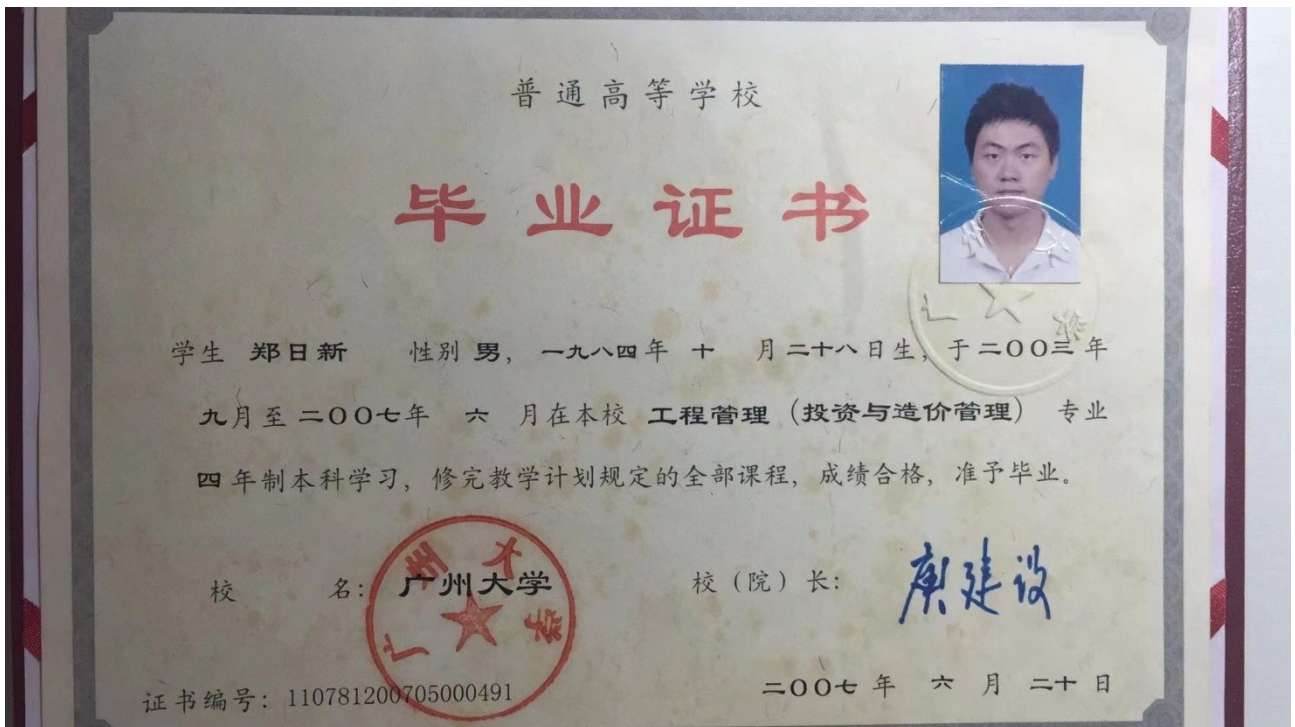 普通高等学校
毕业证书
学生 郑日新 性别 男, 一九八四年 十 月二十八日生, 于二〇〇三年
九月至二〇〇七年 六 月在本校 工程管理 (投资与造价管理) 专业
四年制本科学习, 修完教学计划规定的全部课程, 成绩合格, 准予毕业。
校 名: 广州大学
广州大学
校(院)长: 庾建设
证书编号: 110781200705000491
二〇〇七年 六 月 二十 日